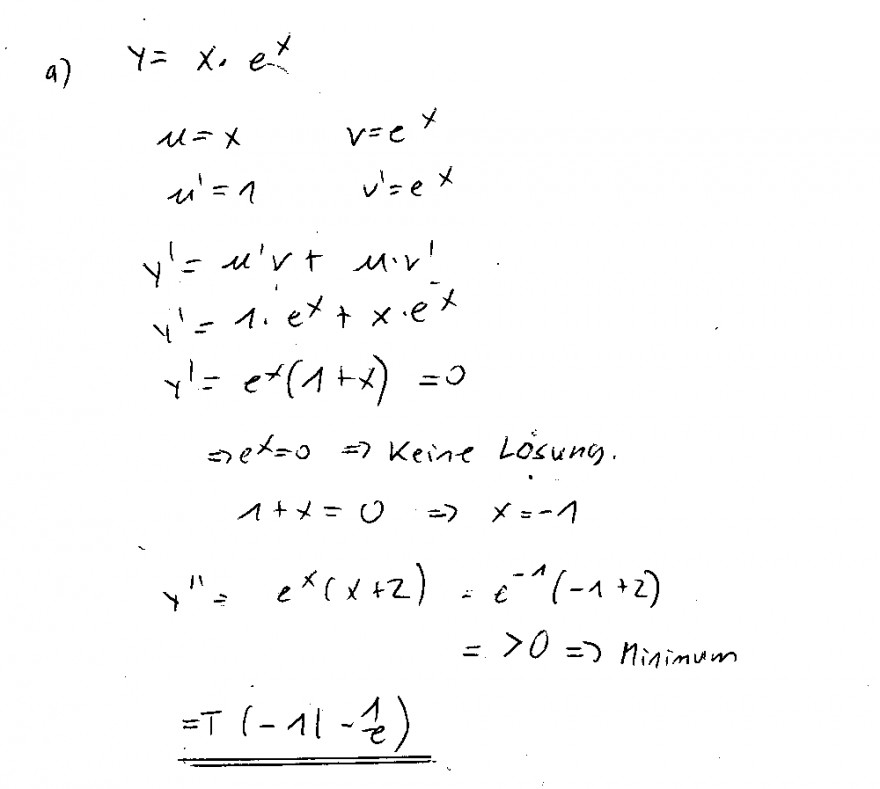 a) y = x · e^x
u = x v = e^x
u' = 1 v' = e^x
y' = u'v + u·v'
y' = 1 · e^x + x · e^x
y' = e^x(1+x) = 0
⇒ e^x = 0 ⇒ Keine Lösung.
1 + x = 0 ⇒ x = -1
y'' = e^x(x+2) = e^-1(-1+2)
= >0 ⇒ Minimum
=T (-1| -1/e)